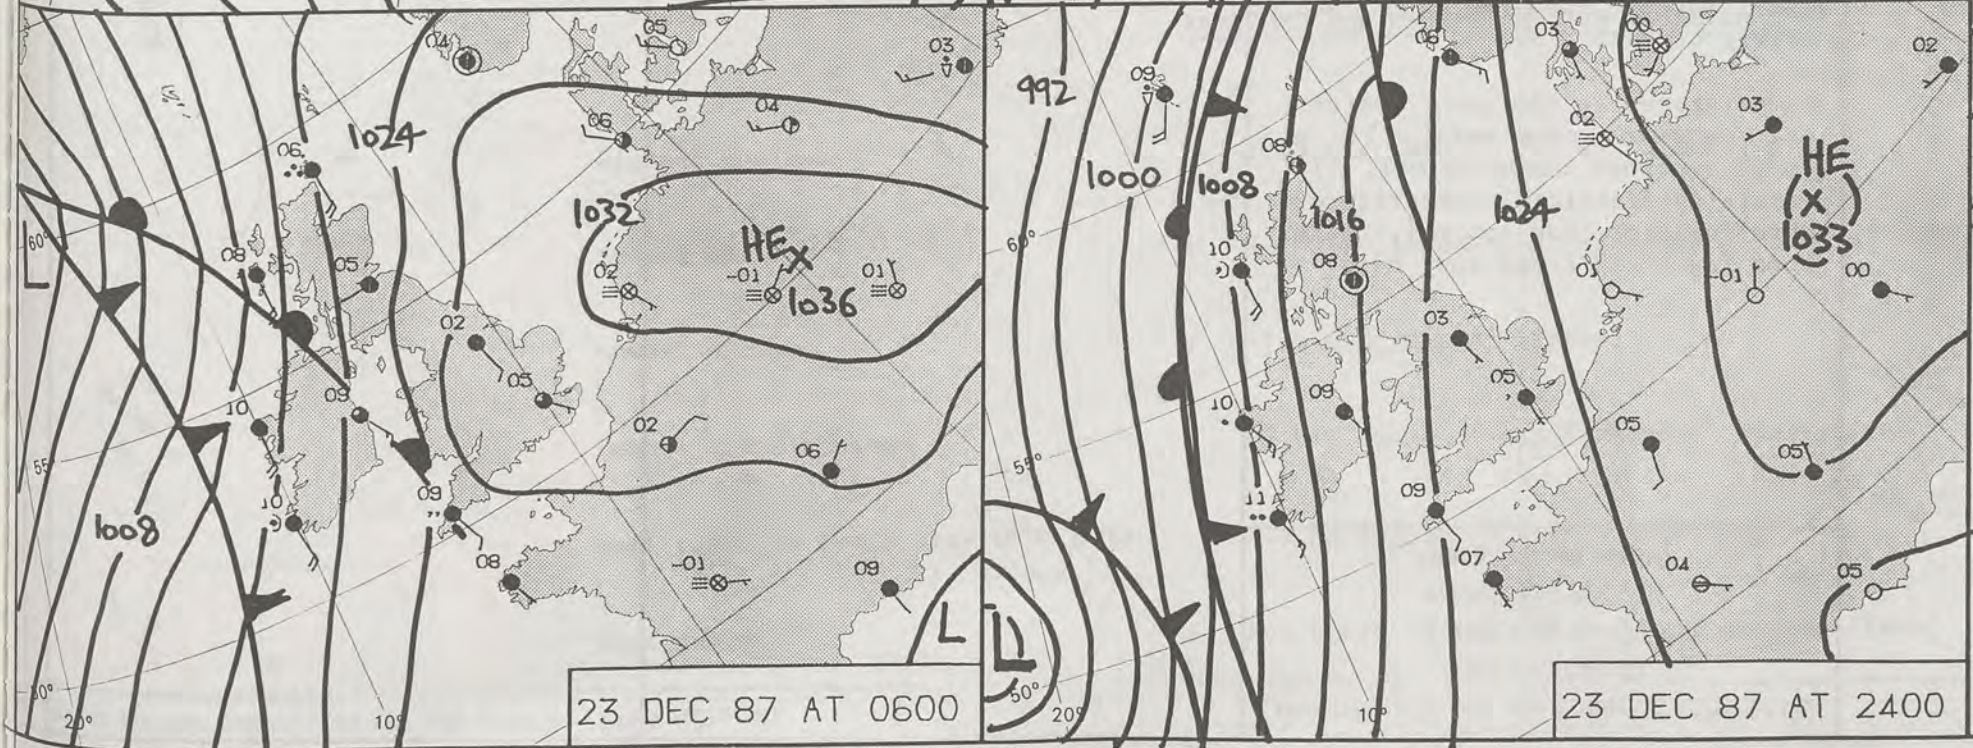 04
05
03
06
04
1024
06
1032
HE
1036
60°
L
08
05
02
-01
01
02
05
09
10
02
06
55°
10
09
1008
08
-01
09
L
50°
20°
10°
23 DEC 87 AT 0600
06
03
00
02
992
09
1000
08
1008
1016
1024
02
03
HE
1033
60°
10
08
01
-01
00
03
05
10
09
05
05
55°
11
09
07
04
05
L
50°
20°
10°
23 DEC 87 AT 2400